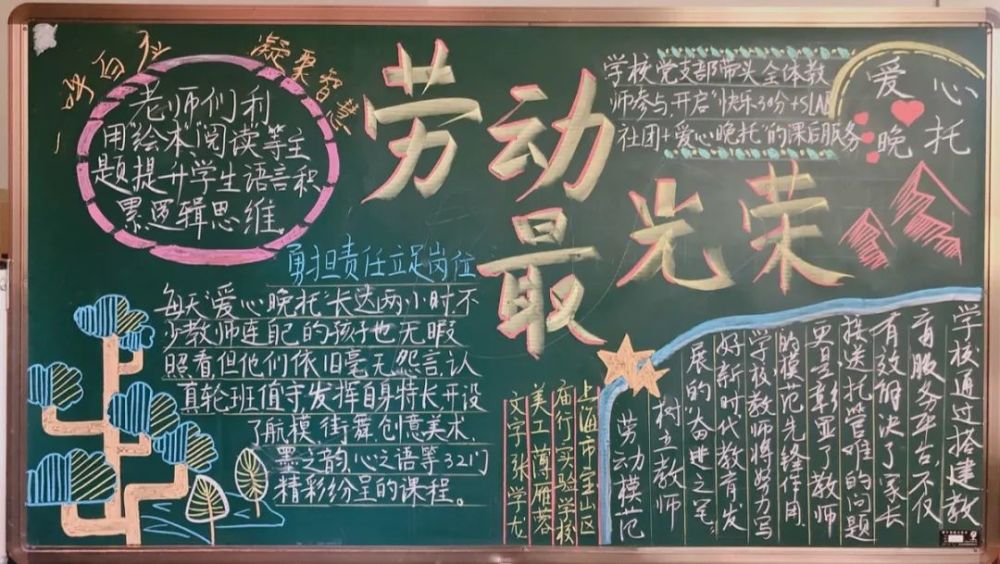 劳动
最光荣
凝聚智慧
老师们利
用“绘本”阅读等主
题提升学生语言积
累逻辑思维
学校党支部带头全体教
师参与,开启“快乐30分+SLAB
社团+爱心晚托”的课后服务
爱心
晚托
勇担责任立足岗位
每天“爱心晚托”长达两小时.不
少教师连自己的孩子也无暇
照看.但他们依旧毫无怨言.认
真轮班值守发挥自身特长开设
了航模.街舞.创意美术.
墨之韵.心之语等32门
精彩纷呈的课程。
学校通过搭建教
育服务平台,不仅
有效解决了家长
接送托管难的问题
更是彰显了教师
的模范先锋作用.
学校教师将努力写
好新时代教育发
展的“奋进之笔”
树立教师
劳动模范
上海市宝山区
庙行实验学校
美工 蒲雁蓉
文字 张学龙